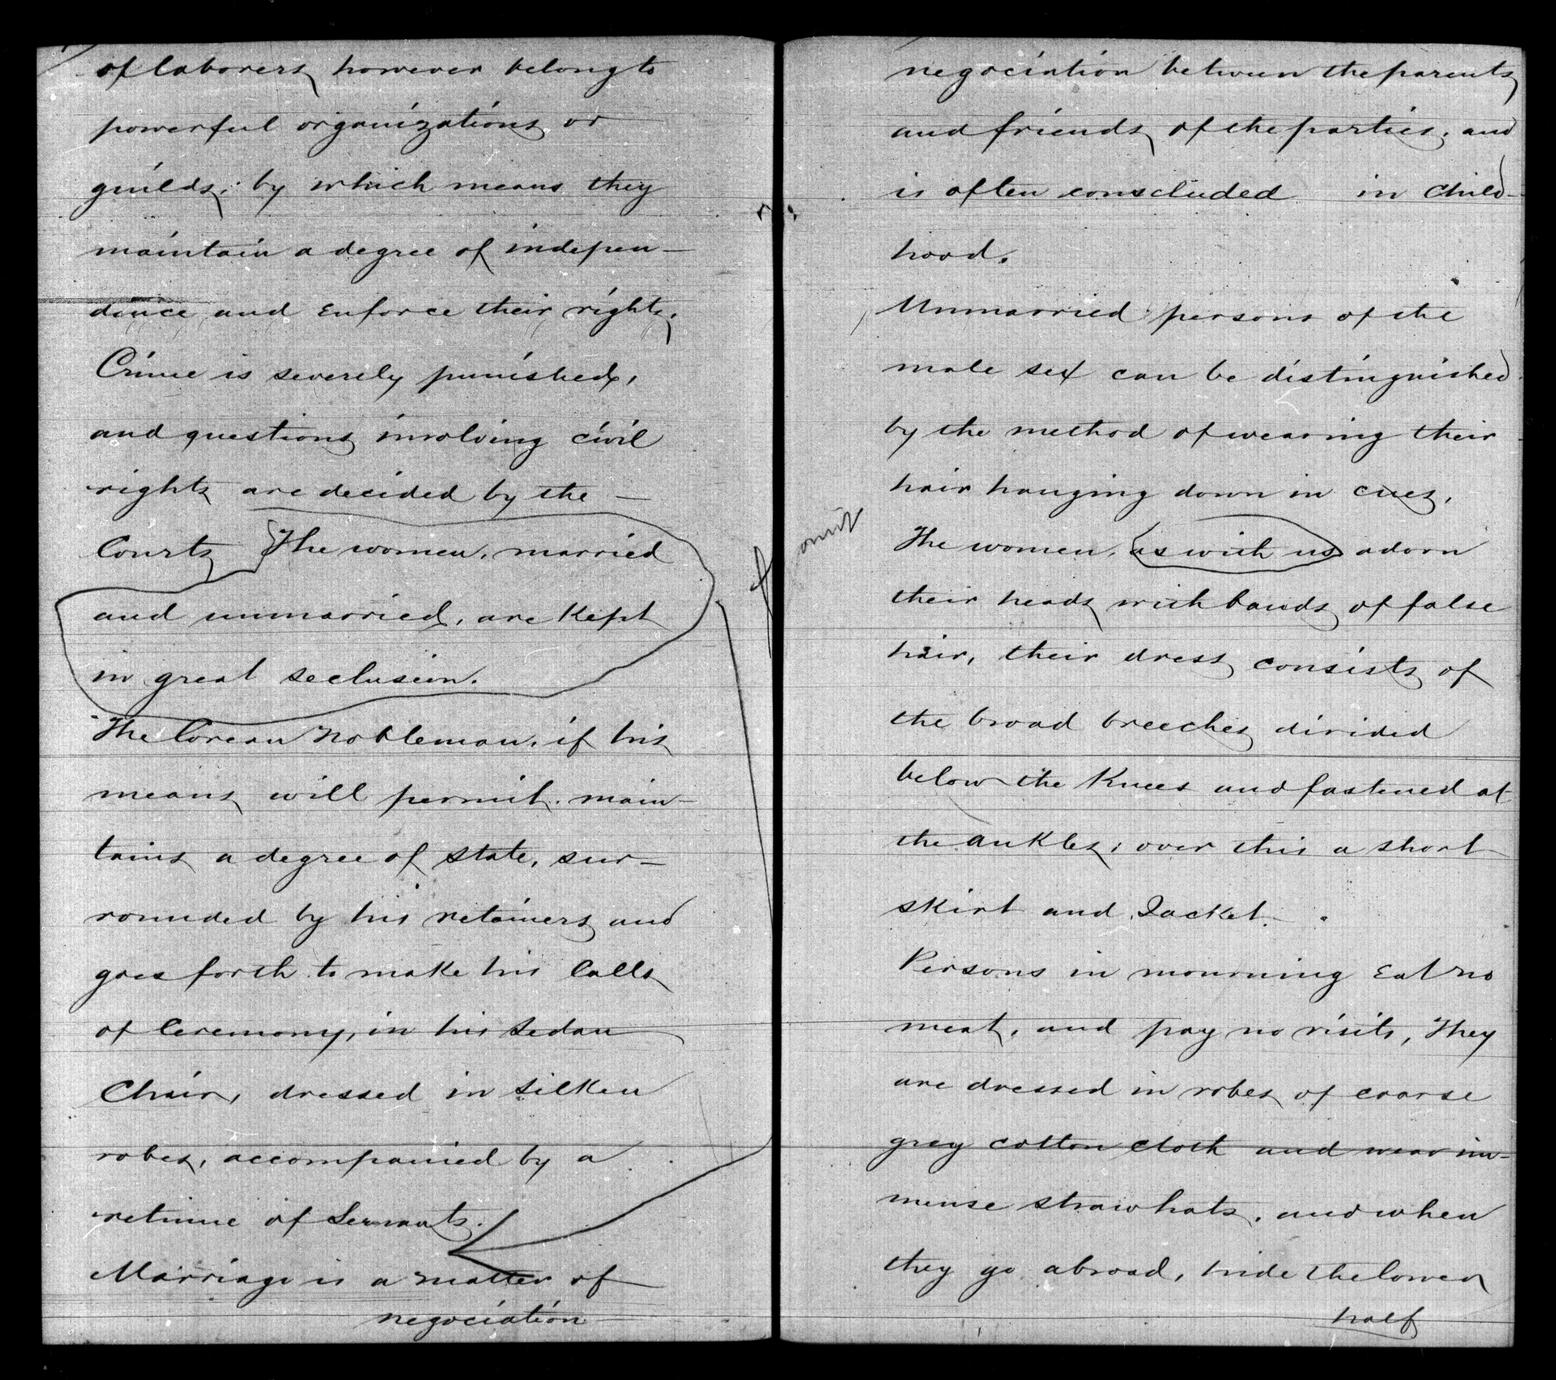 of laborers, however belong to
powerful organizations or
guilds; by which means they
maintain a degree of indepen-
dence, and enforce their rights.
Crime is severely punished,
and questions involving civil
rights are decided by the —
Courts. The women, married
and unmarried, are kept
in great seclusion.
The Corean Nobleman, if his
means will permit, main-
tains a degree of state, sur-
rounded by his retainers and
goes forth to make his Calls
of Ceremony, in his Sedan
Chair, dressed in silken
robes, accompanied by a
retinue of Servants.
Marriage is a matter of
negociation
negociation between the parents
and friends of the parties, and
is often conscluded in Child-
hood.
Unmarried persons of the
male sex can be distinguished
by the method of wearing their
hair hanging down in cues.
omit
The women, as with us adorn
their heads with bands of false
hair, their dress consists of
the broad breeches divided
below the Knees and fastened at
the ankles, over this a short
skirt and Jacket.
Persons in mourning Eat no
meat, and pay no visits, They
are dressed in robes of coarse
grey cotton cloth and wear im-
mense straw hats, and when
they go abroad, hide the lower
half